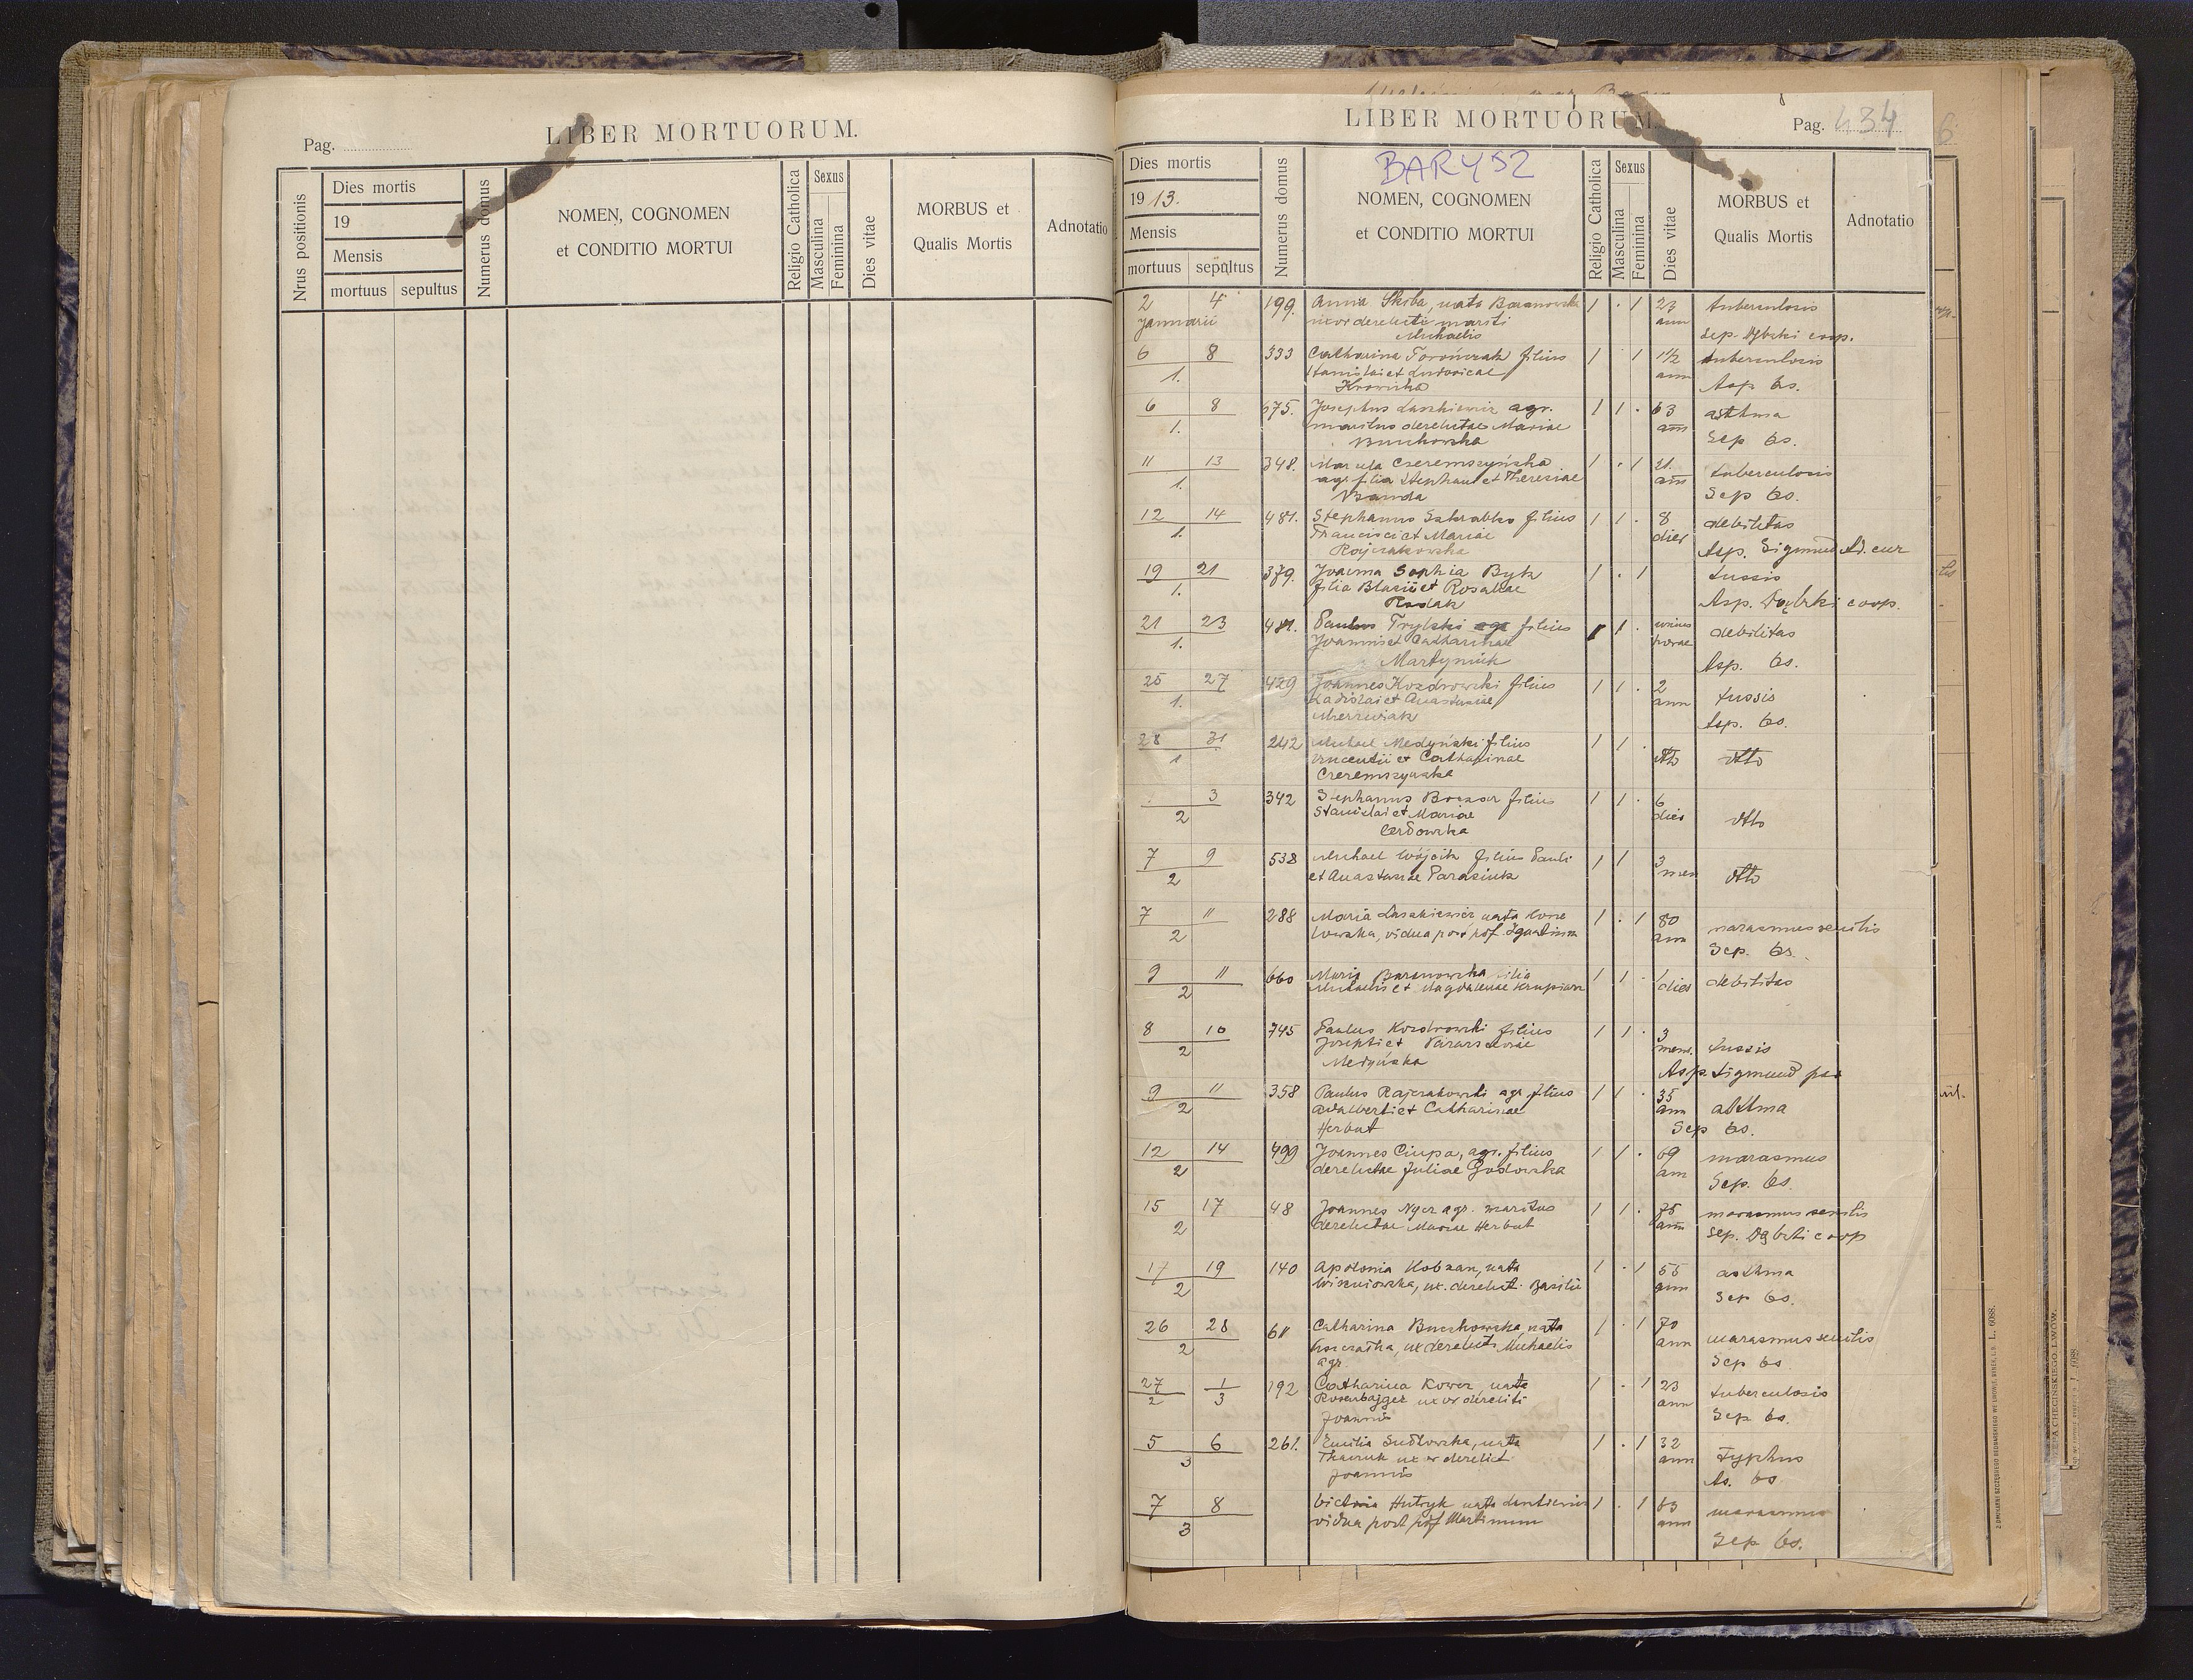 Pag.
LIBER MORTUORUM.
Nrus positionis
Dies mortis
19
Mensis
mortuus sepultus
Numerus domus
NOMEN, COGNOMEN
et CONDITIO MORTUI
Religio Catholica
Sexus
Masculina
Feminina
Dies vitae
MORBUS et
Qualis Mortis
Adnotatio
LIBER MORTUORUM.
Pag. 434
Dies mortis
1913.
Mensis
mortuus sepultus
Numerus domus
BARYSZ
NOMEN, COGNOMEN
et CONDITIO MORTUI
Religio Catholica
Sexus
Masculina
Feminina
Dies vitae
MORBUS et
Qualis Mortis
Adnotatio
2 4 199. Anna Skiba, nata Baranowska 1 . 1 23 tuberculosis
Januarii uxor derelicti mariti ann
Michaelis Sep. Dąbski coop.
6 8 333 Catharina Torończak filius 1 1 1/2 tuberculosis
1. Stanislai et Ludovicae ann
Krowicka Asp. es.
6 8 675. Josephus Laszkiewicz agr. 1 1 . 63 asthma
1. maritus derelictae Mariae ann
Buczkowska Sep es.
11 13 348. Czeremszyńska 1 . 1 21. tuberculosis
1. agr filia Stephani et Theresiae ann
Banda Sep es.
12 14 481. Stephanus Szkrabko filius 1 1 . 8 debilitas
1. Francisci et Mariae dies
Rajczakowska Asp. Sigmund Ad. cur
19 21 379. Joanna Sophia Byk 1 . 1 tussis
1. filia Blasii et Rosaliae
Rodak Asp. Dąbski coop.
21 23 481. Paulus Trylski agr filius 1 1 . unius debilitas
1. Joannis et Catharinae horae
Martyniuk Asp. es.
25 27 429 Joannes Kozdrowski filius 1 1 . 2 tussis
1. Ladislai et Anastasiae ann
Asp. es.
28 31 242 Michael Medyński filius 1 1 .
1 Vincentii et Catharinae dtto dtto
Czeremszyńska
3 342 Stephanus filius 1 1 . 6
2 Stanislai et Mariae dies dtto
7 9 538 Michael Wójcik filius Pauli 1 1 3
2 et Anastasiae Parasiuk men dtto
7 11 288 Maria Laszkiewicz nata 1 . 1 80 marasmus senilis
2 vidua post pdf. Ignatium ann
Sep. es.
9 11 660 Maria Baranowska filia 1 1 . 1 debilitas
2 Michaelis et Magdalenae dies
8 10 745 Paulus Kozdrowski filius 1 1 . 3
2 Josephi et mens. tussis
Medyńska Asp. Sigmund
9 11 358 Paulus Rajczakowski agr filius 1 1 . 35
2 Adalberti et Catharinae ann asthma
Herbut Sep es.
12 14 499 Joannes Ciupa, agr. filius 1 1 . 69 marasmus
2 derelictae Juliae Godlowska ann Sep. es.
15 17 48 Joannes Nycz agr. maritus 1 1 . 75 marasmus senilis
2 derelictae Mariae Herbut ann Sep. Dąbski coop
17 19 140 Apolonia Kobzan, nata 1 . 1 55 asthma
2 Wiszniowska, ux. derelict. Basilii ann Sep es.
26 28 611 Catharina Buczkowska, nata 1 . 1 70
2 ux derelicti Michaelis ann marasmus senilis
agr. Sep es.
27/2 1/3 192 Catharina Kowcz, nata 1 . 1 23
uxor derelicti ann tuberculosis
Joannis Sep es.
5 6 261. Emilia Sudlowska, nata 1 . 1 32
3 Tkaczuk uxor derelict ann typhus
Joannis As. es
7 8 Victoria Hutryk nata 1 . 1 63 marasmus
3 vidua post pdf Martinum ann
Sep es.